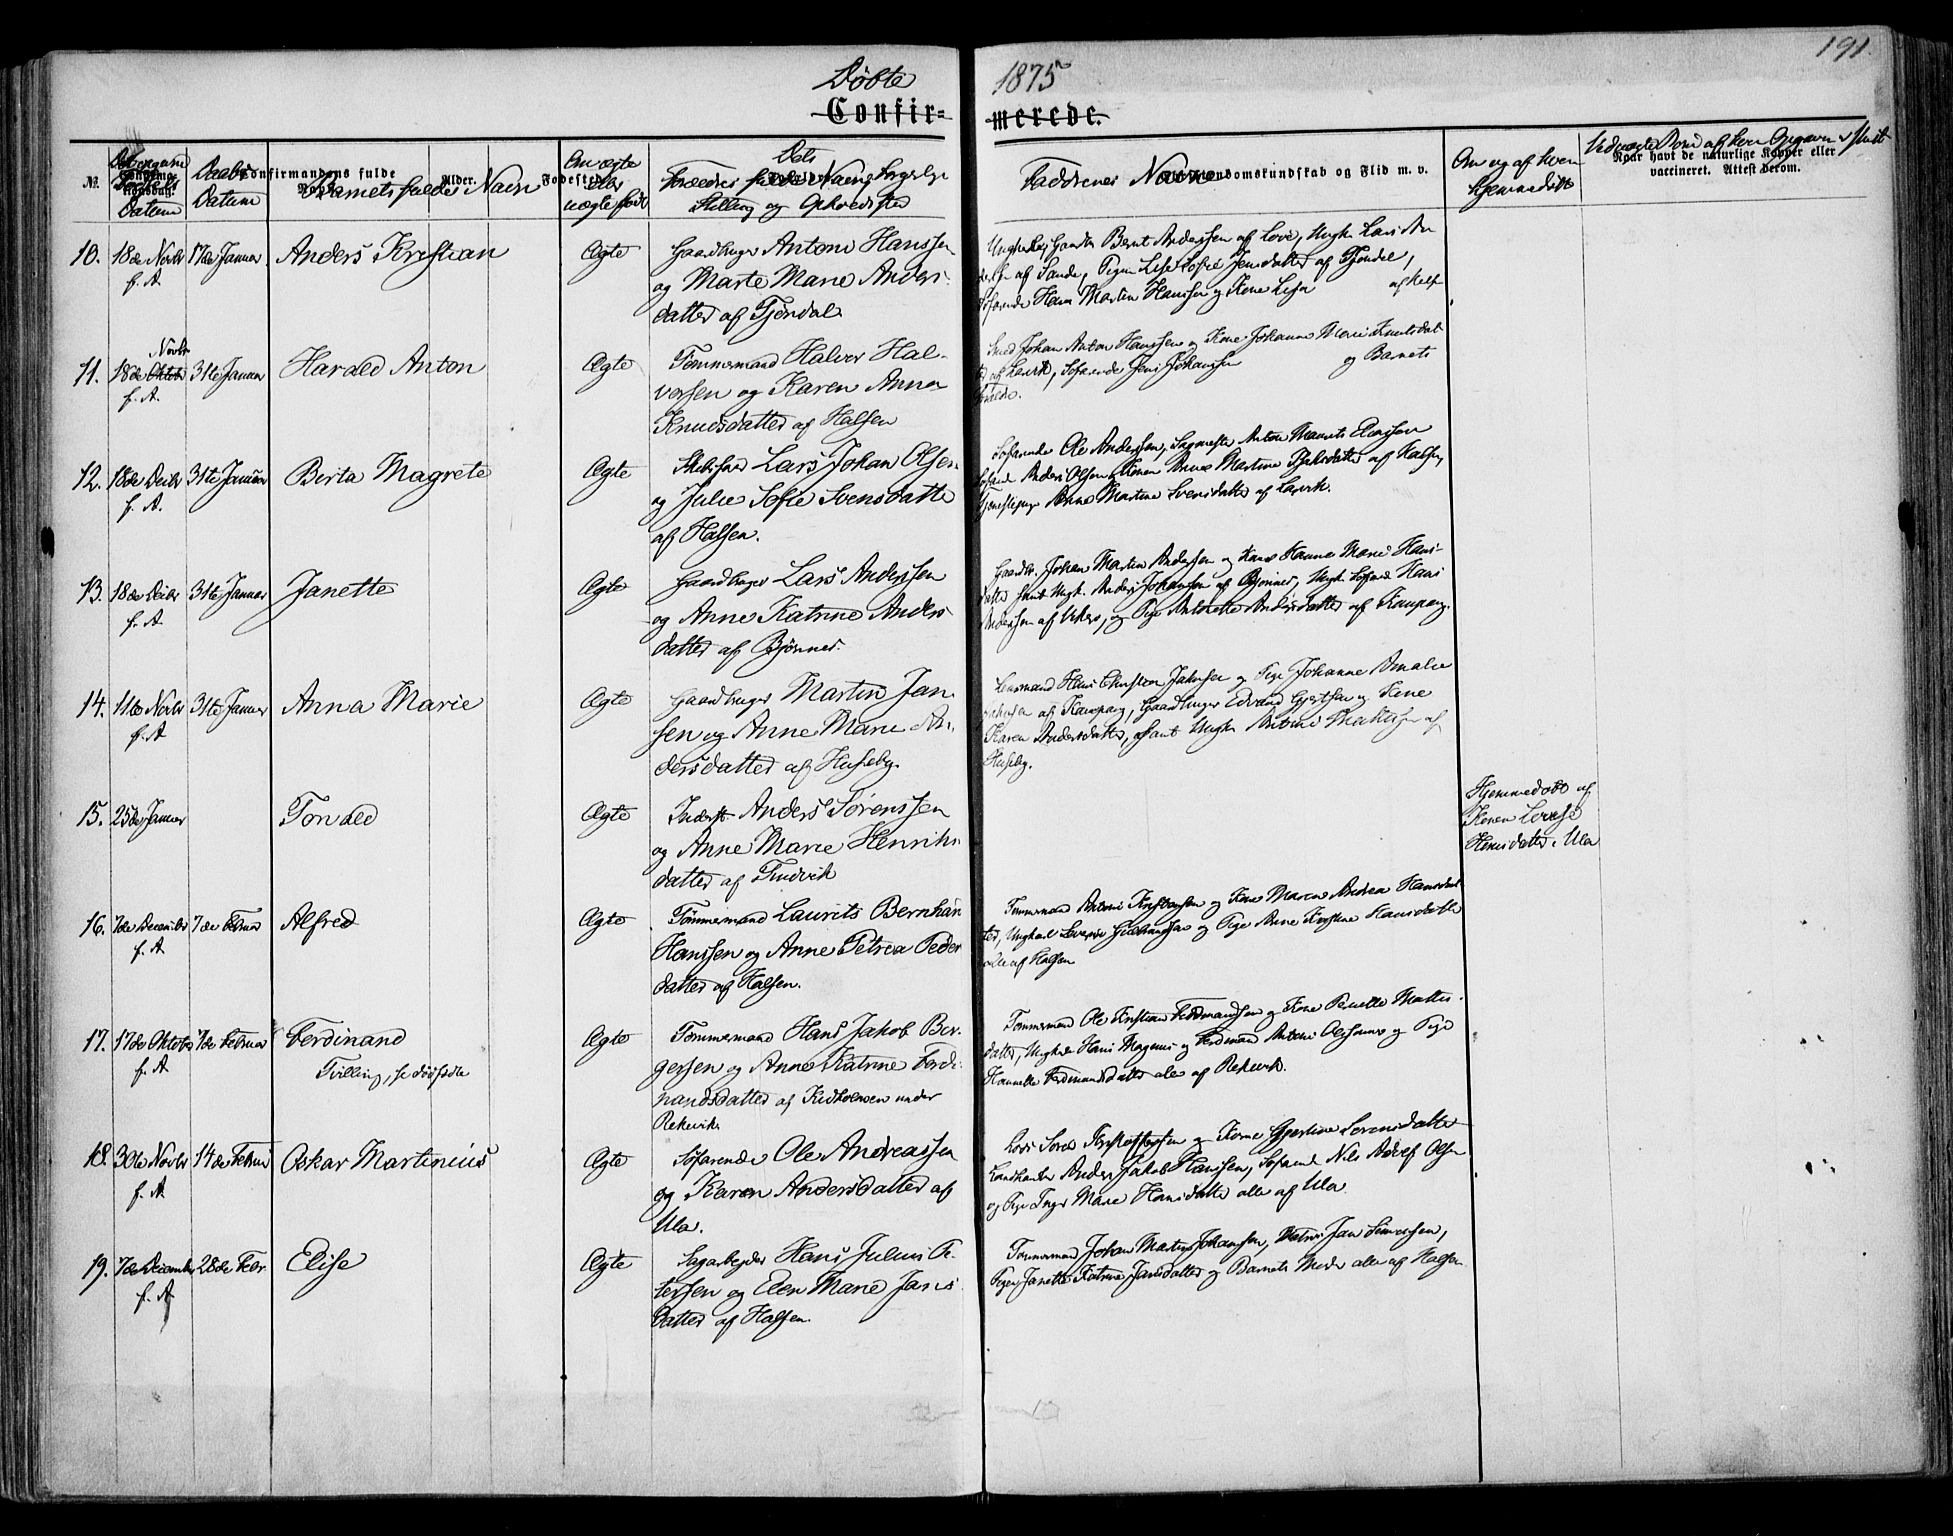 191.
Døbte 1875
Confir= merede.
No.
Datum
Daabs Datum
Confirmandens fulde Navn
Barnets fulde Navn
Alder.
Fødested.
Om ægte eller uægte født
Forældres fulde Navne
Stilling og Opholdssted
Faddernes Navne
Kristendomskundskab og Flid m. v.
Om og af hvem hjemmedøbt
Naar havt de naturlige Kopper eller vaccineret. Attest derom.
10. 18de Novbr f. A. 17de Januar Anders Kristian Ægte Gaardbruger Antoni Hanssen
og Marte Marie Anders-
datter af Tjøndal.
Ungkarl Gaardbr Bernt Anderssen af Love, Ungk. Lars An
af Sande, Pigen Lise Sofie Jensdatter af Tjøndal,
Søfarende Hans Martin Hanssen og Kone Lisa
11. 18de Oktob Novbr f. A. 31te Januar Harald Anton Ægte Tømmermand Halvor Hal-
vorsen og Karen Anna
Knudsdatter af Halsen
Smed Johan Anton Hanssen og Kone Johanne Marie Knutsdat
af Larvik, Søfarende Jens Johanssen og Barnets
12. 18de Decbr f. A. 31te Januar Berta Magrete Ægte Skibsfører Lars Johan Olsen
og Julie Sofie Svensdatter
af Halsen.
Søfarende Ole Anderssen, Sagmester Anton Mauritz
Anders Olsen, Konen Anne Martine af Halsen,
Tjenestepige Anne Martine Svensdatter af Larvik.
13. 18de Decbr f. A. 31te Januar Janette Ægte Gaardbruger Lars Anderssen
og Anne Katrine Anders
datter af Bjønnes.
Gaardbr. Johan Martin Anderssen og Kone Hanne Marie Hans-
datter samt Ungk. Anders Johanssen af Bjønnes, Ungk. Søfarende Hans
Anderssen af og Pige Antonette Andersdatter af Kaupang.
14. 11te Novbr f. A. 31te Januar Anna Marie Ægte Gaardbruger Martin Jan-
sen og Anne Marie An-
dersdatter af Huseby.
Lensmand Hans Christian Jahnsen og Pige Johanne Amalie
Jahnsen af Kaupang, Gaardbruger Edvard Gjertsen og Kone
Karen Andersdatter, samt Ungk Antoni af
Huseby.
15. 25de Januar Torvald Ægte Inderst Anders Sørenssen
og Anne Marie Henriks-
datter af
Hjemmedøbt af
Konen
Hansdatter, Ula
16. 7de Decembr f. A. 7de Februar Alfred Ægte Tømmermand Laurits Bernhard
Hanssen og Anne Petrea Peder
datter af Halsen.
Tømmermand Antoni Kristensen og Kone Maren Andrea Hansdat
ter, Ungkarl og Pige Anne Kirstine Hansdatter
alle af Halsen
17. 17de Oktober f. A. 7de Februar Ferdinand
Tvilling, se dødfødte
Ægte Tømmermand Hans Jakob Bir-
gersen og Anne Katrine Ferdi-
nandsdatter af Kidholmen under
Rekevik.
Tømmermand Ole Kristian Ferdinandsen og Kone Mattis-
datter, Ungkarle Hans Magnus og Ferdinand Antoni og Pige
Hannette Ferdinandsdatter alle af Rekevik.
18. 30te Novbr f. A. 14de Februar Oskar Martinius Ægte Søfarende Ole Andreassen
og Karen Andersdatter af
Ula.
Lods Søren Kristoffersen og Kone Gjertine Sørensdatter
Landhandler Anders Jakob Hanssen, Søfarende Nils Adolf Olsen
og Pige Inger Marie Hansdatter alle af Ula.
19. 7de December f. A. 28de Febr. Elise Ægte Sagarbejder Hans Julius Pe-
tersen og Elen Marie Jans
datter af Halsen.
Tømmermand Johan Martin Johanssen, Matros Jan
Pigen Janette Katrine Jansdatter og Barnets Moder alle af Halsen.